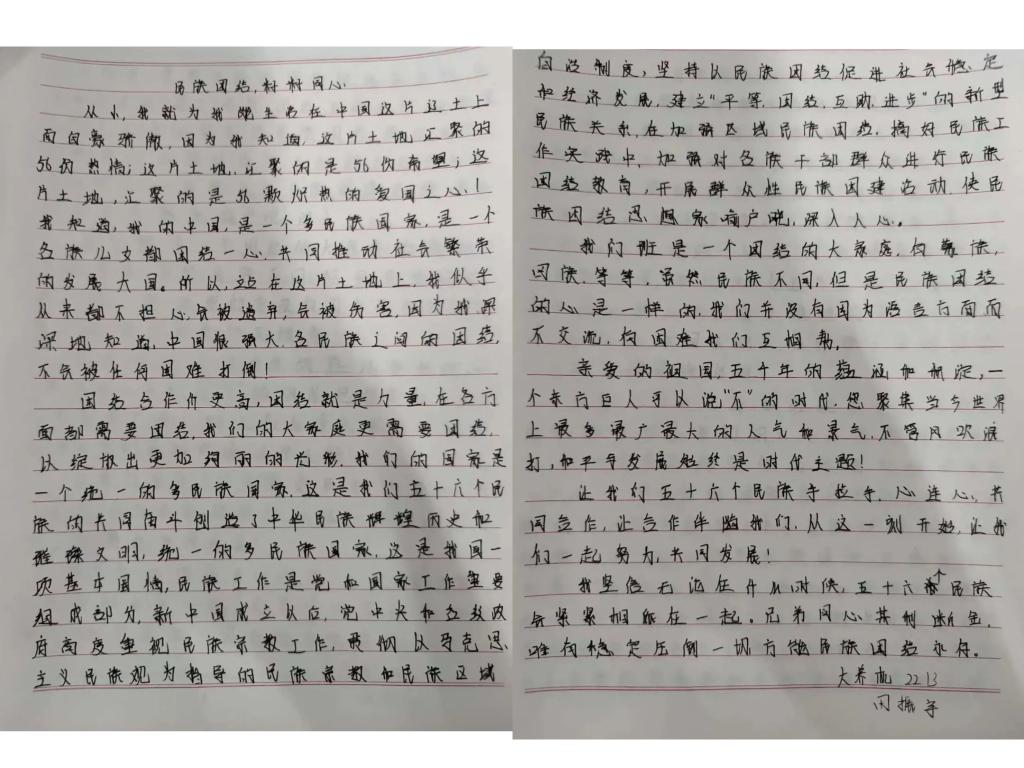 民族团结,村村同心
从小,我就为我能生活在中国这片这土上
而自豪骄傲,因为我知道,这片土地,汇聚的
56份热情;这片土地,汇聚的是56份希望;这
片土地,汇聚的是56颗炽热的爱国之心!
我知道,我的中国,是一个多民族国家,是一个
各族儿女都团结一心,共同推动社会繁荣
的发展大国。所以,站在这片土地上,我似乎
从来都不担心,会被遗弃,会被伤害,因为我深
深地知道,中国很强大,各民族之间的团结,
不会被任何困难打倒!
团结合作价更高,团结就是力量,在各方
面都需要团结,我们的大家庭更需要团结,
以绽放出更加绚丽的光彩。我们的国家是
一个统一的多民族国家,这是我们五十六个民
族的共同奋斗创造了中华民族辉煌历史和
璀璨文明,统一的多民族国家,这是我国一
项基本国情,民族工作是党和国家工作重要
组成部分,新中国成立以后,党中央和各级政
府高度重视民族宗教工作,贯彻以马克思
主义民族观为指导的民族宗教和民族区域
自治制度,坚持以民族团结促进社会稳定
和经济发展,建立“平等,团结,互助,进步”的新型
民族关系,在加强区域民族团结,搞好民族工
作实践中,加强对各族干部群众进行民族
团结教育,开展群众性民族团建活动,使民
族团结思想家喻户晓,深入人心。
我们班是一个团结的大家庭,有彝族,
回族,等等,虽然民族不同,但是民族团结
的心是一样的,我们并没有因为语言方面而
不交流,有困难我们互相帮,
亲爱的祖国,五千年的磨砺和沉淀,一
个东方巨人可以说“不”的时代,您聚集当今世界
上最多最广最大的人气和景气,不管风吹浪
打,和平与发展始终是时代主题!
让我们五十六个民族手拉手,心连心,共
同合作,让合作伴随我们,从这一刻开始,让我
们一起努力,共同发展!
我坚信无论在什么时候,五十六个民族
会紧紧相依在一起。兄弟同心,其利断金,
唯有稳定压倒一切方能民族团结永存。
大养机2213
田振宇